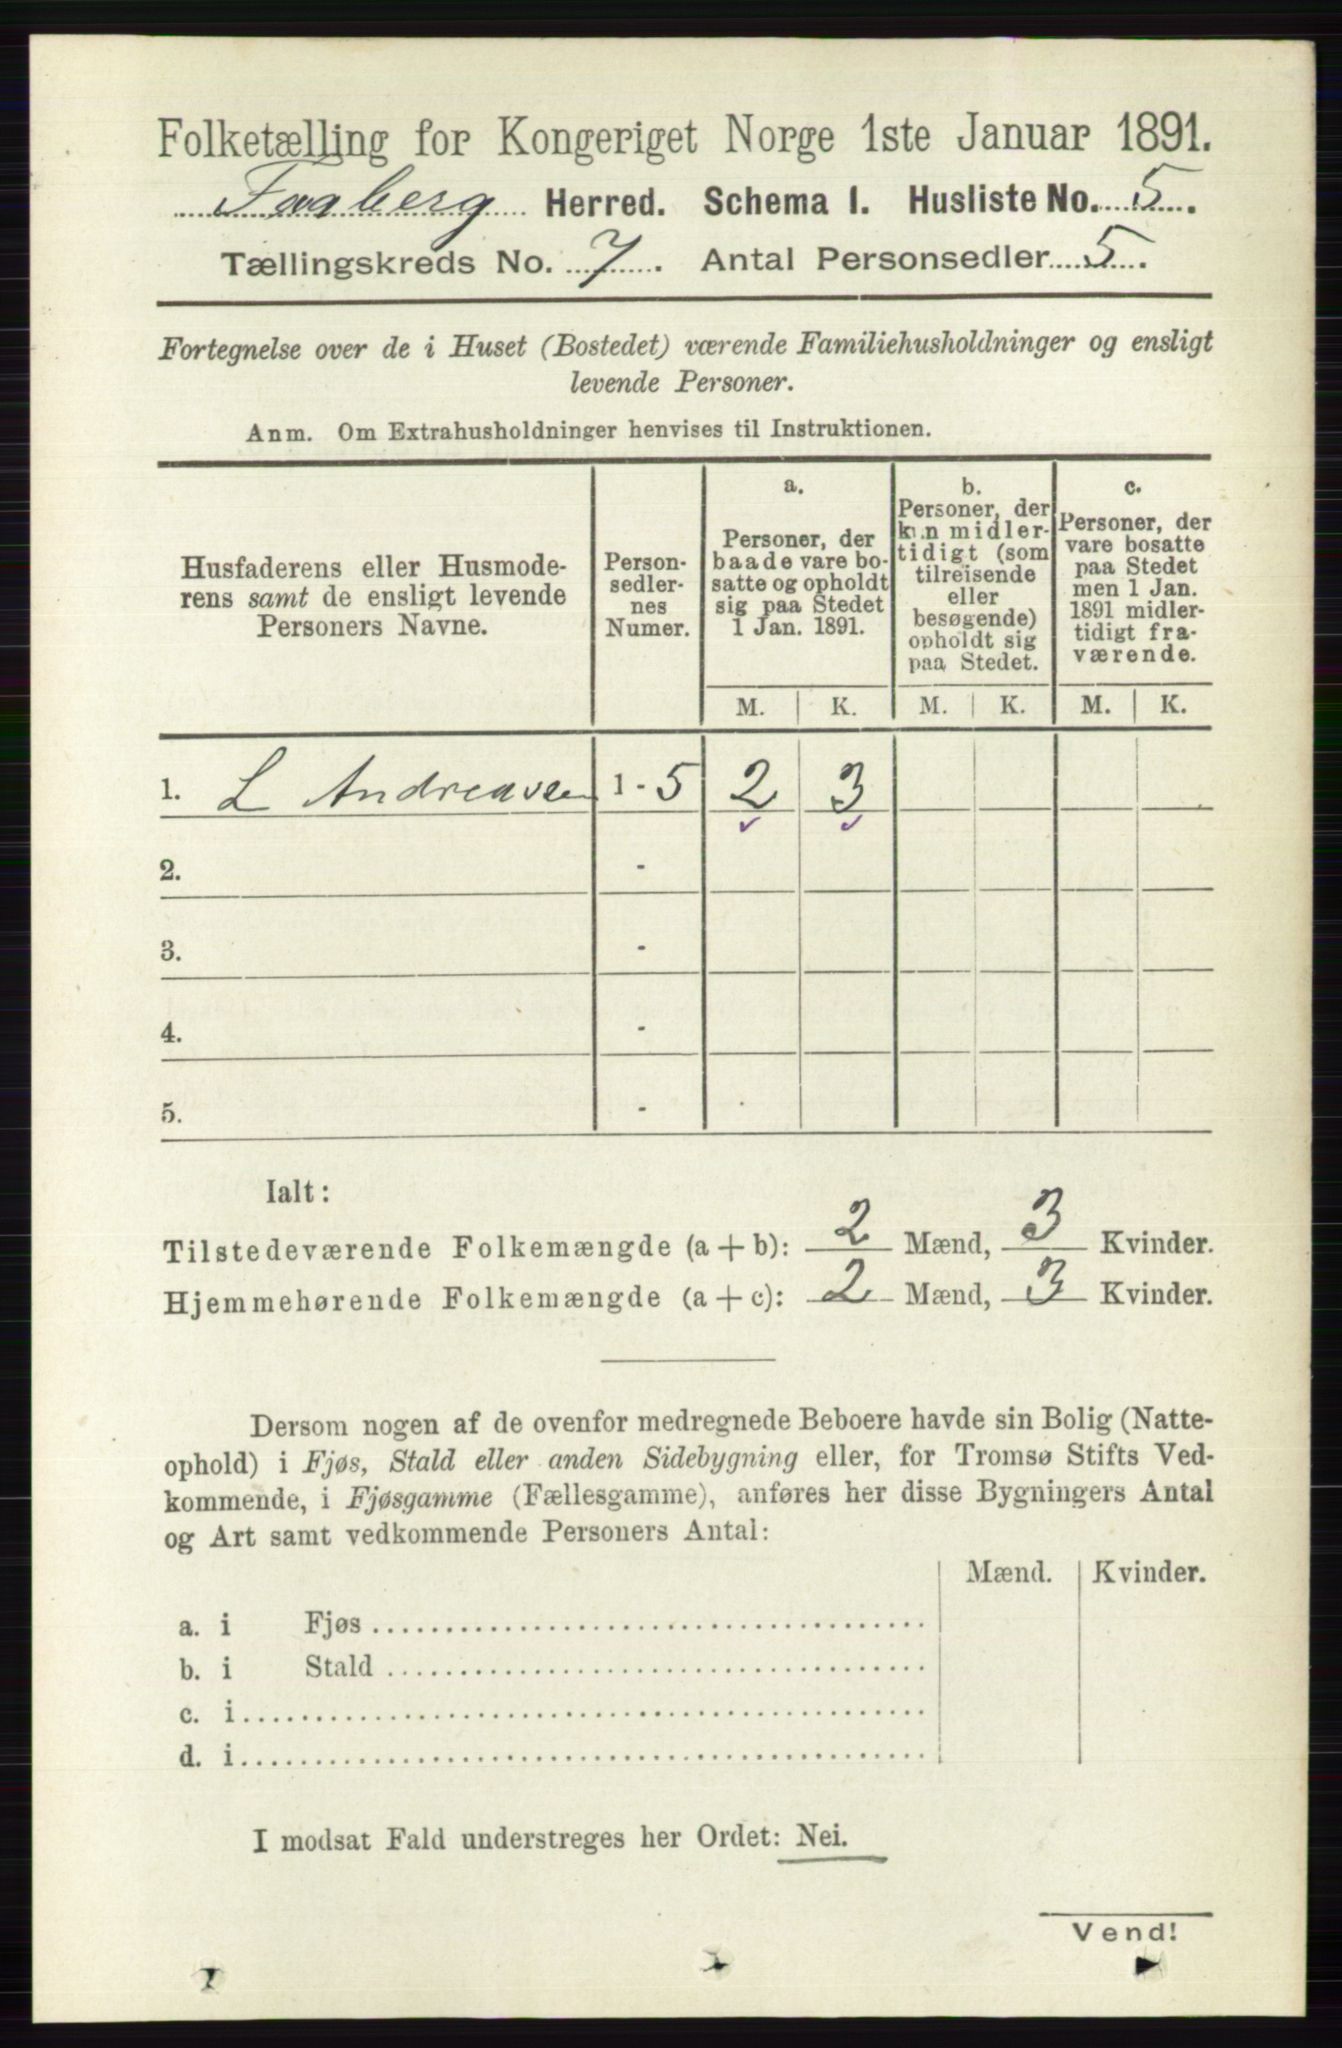 Folketælling for Kongeriget Norge 1ste Januar 1891.
Faaberg Herred. Schema I. Husliste No. 5.
Tællingskreds No. 7. Antal Personsedler 5.
Fortegnelse over de i Huset (Bostedet) værende Familiehusholdninger og ensligt
levende Personer.
Anm. Om Extrahusholdninger henvises til Instruktionen.
Husfaderens eller Husmode-
rens samt de ensligt levende
Personers Navne.
Person-
sedler-
nes
Numer.
a.
Personer, der
baade vare bo-
satte og opholdt
sig paa Stedet
1 Jan. 1891.
b.
Personer, der
kun midler-
tidigt (som
tilreisende
eller
besøgende)
opholdt sig
paa Stedet.
c.
Personer, der
vare bosatte
paa Stedet
men 1 Jan.
1891 midler-
tidigt fra-
værende.
M. K. M. K. M. K.
1. L Andreasen 1 - 5 2 3
2. -
3. -
4. -
5. -
Ialt:
Tilstedeværende Folkemængde (a + b): 2 Mænd, 3 Kvinder.
Hjemmehørende Folkemængde (a + c): 2 Mænd, 3 Kvinder.
Dersom nogen af de ovenfor medregnede Beboere havde sin Bolig (Natte-
ophold) i Fjøs, Stald eller anden Sidebygning eller, for Tromsø Stifts Ved-
kommende, i Fjøsgamme (Fællesgamme), anføres her disse Bygningers Antal
og Art samt vedkommende Personers Antal:
Mænd. Kvinder.
a. i Fjøs
b. i Stald
c. i
d. i
I modsat Fald understreges her Ordet: Nei.
Vend!